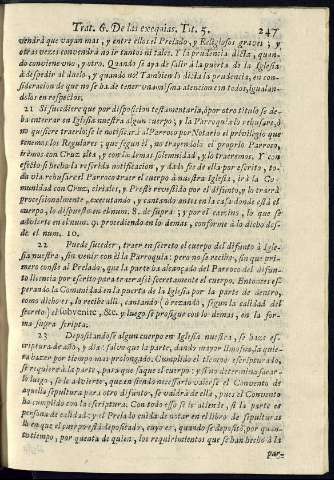 Trat. 6. De las exequias. Tit. 5. 247
vendrà que vayan mas, y entre ellos el Prelado, y Religiosos graves; y
otras vezes convendrà no ir tantos ni tales. Y la prudencia dicta, quan-
do conviene vno, y otro. Quando se aya de salir à la puerta de la Iglesia
à despedir al duelo, y quando no? Tambien lo dicta la prudencia, en con-
sideracion de que no se ha de tener vna misma atencion con todos, igualan-
dolos en respetos.
21 Si sucediere que por disposicion testamentaria, ò por otro titulo se de-
ba enterrar en Iglesia nuestra algun cuerpo; y la Parroquia lo rehusare, ò
no quisiere traerlo: se le notificarà al Parroco por Notario el privilegio que
tenemos los Regulares; que segun èl, no trayendolo el proprio Parroco,
iremos con Cruz alta, y con la demàs solemnidad, y lo traeremos. Y con
efecto se hecha la referida notificacion, y dado fee de ella por escrito, to-
da via rehusare el Parroco traer el cuerpo à nuestra Iglesia; irà la Co-
munidad con Cruz, ciriales, y Preste revestido por el difunto, y lo traerà
processionalmente, executando, y cantando antes en la casa donde està el
cuerpo, lo dispuesto en el num. 8. de supra; y por el camino, lo que se
advierte en el num. 9. procediendo en lo demàs, conforme à lo dicho des-
de el num. 10.
22 Puede suceder, traer en secreto el cuerpo del difunto à Igle-
sia nuestra, sin venir con èl la Parroquia: pero no se reciba, sin que pri-
mero conste al Prelado, que la parte ha alcançado del Parroco del difun-
to licencia por escrito para traer assi secretamente el cuerpo. Entonces es-
perando la Comunidad en la puerta de la Iglesia por la parte de dentro,
como dicho es, lo recibe alli, cantando (ò rezando, segun la calidad del
secreto) el Subvenite, &c. y luego se prosigue con lo demàs, en la for-
ma supra scripta.
23 Depositandose algun cuerpo en Iglesia nuestra, se haze es-
criptura de año, y dia: salvo que la parte, dando mayor limosna, la quie-
ra hazer por tiempo mas prolongado. Cumplido el tiempo escripturado,
se requiere à la parte, para que saque el cuerpo: y si no determina sacar-
lo luego, se le advierte, que en siendo necessario valerse el Convento de
aquella sepultura para otro difunto, se valdrà de ella, pues el Convento
ha cumplido con la escriptura. Con todo esso se le atiende, si la parte es
persona de calidad; y el Prelado cuida de notar en el libro de sepulturas
la en que por este està depositado, cuyo es, quando se depositò, por quan-
to tiempo, por quenta de quien, los requirimientos que se han hecho à la
par-